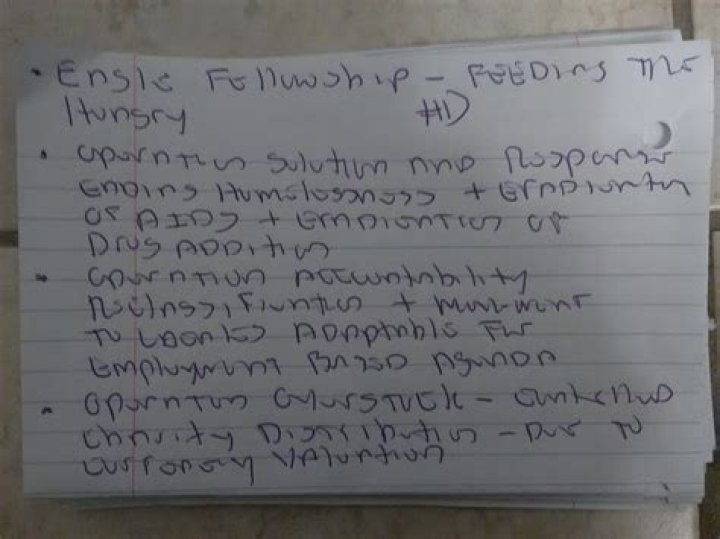 • Engle Fellowship - FEEDING THE
Hungry #1)
• Operation Solution AND Response
Ending Homelessness + Eradication
OF AIDS + Eradication OF
Drug Addition
• Operation Accountability
Reclassification + Movement
To
Adaptable For
Employment Based Agenda
• Operation -
Charity Distribution - Due To
Currency Valuation